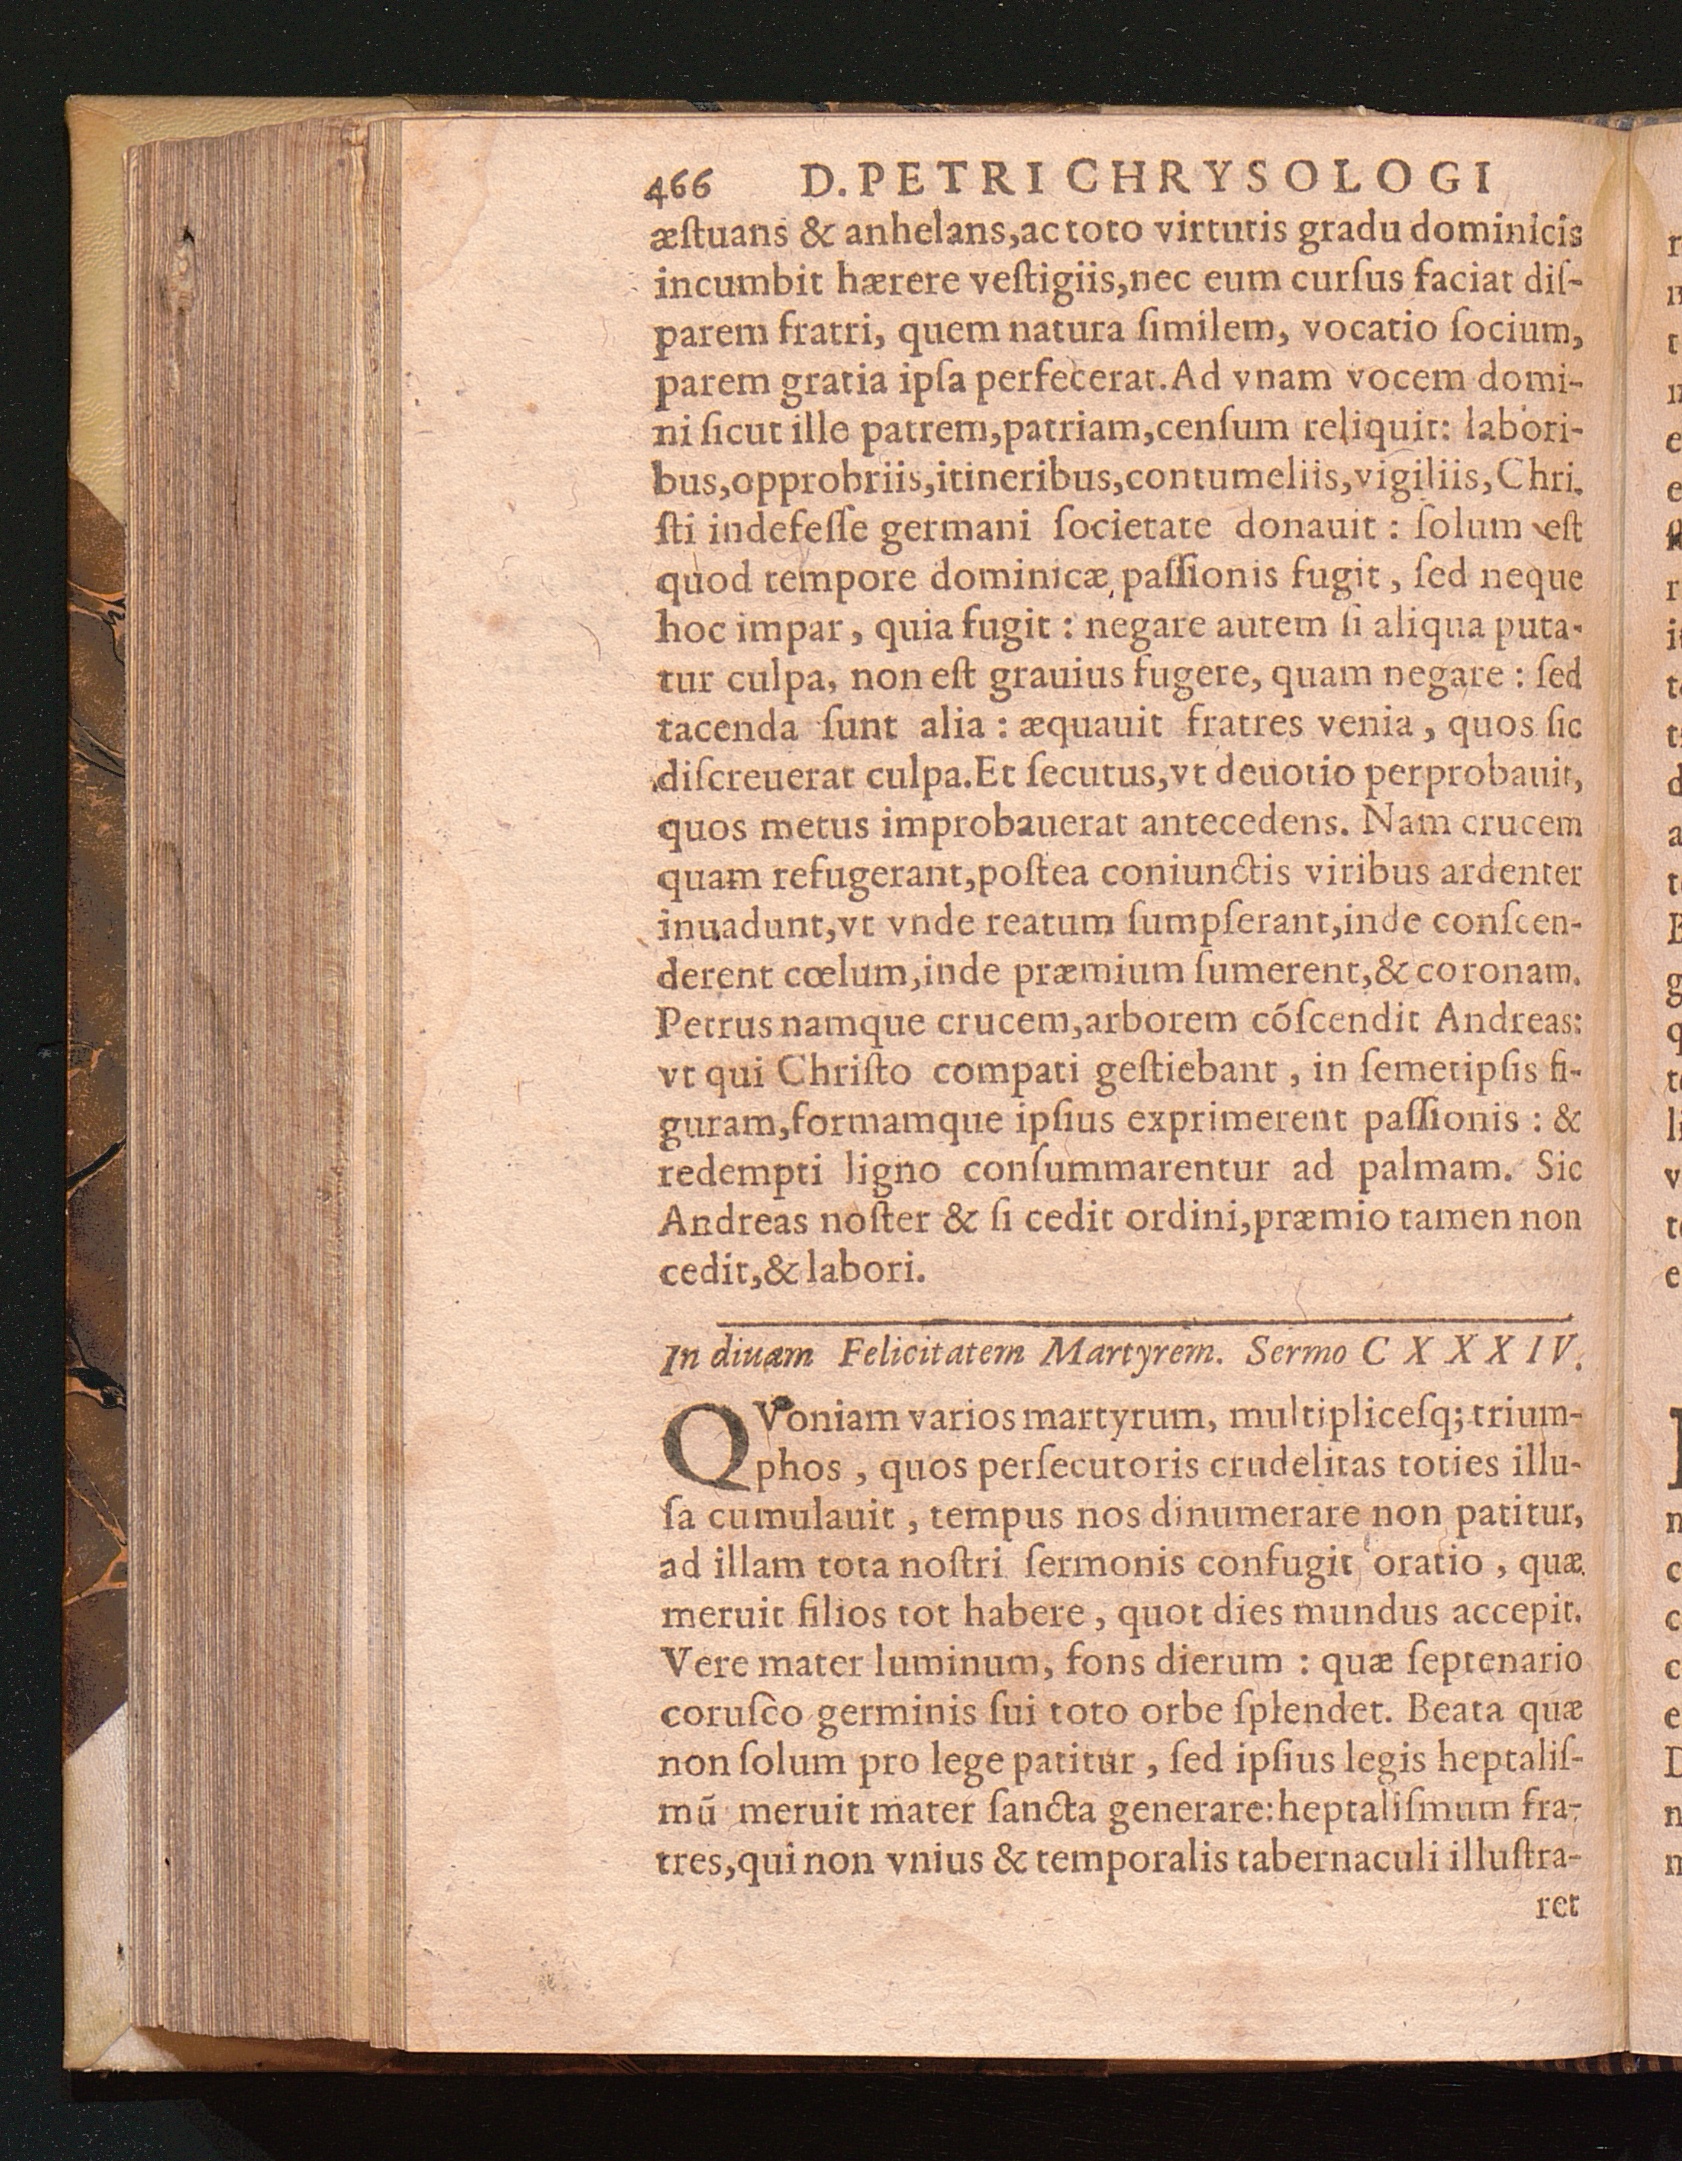 466 D. PETRI CHRYSOLOGI
æſtuans & anhelans, ac toto virtutis gradu dominicis
incumbit hærere veſtigiis, nec eum curſus faciat diſ-
parem fratri, quem natura ſimilem, vocatio ſocium,
parem gratia ipſa perfecerat. Ad vnam vocem domi-
ni ſicut ille patrem, patriam, cenſum reliquit: labori-
bus, opprobriis, itineribus, contumeliis, vigiliis, Chri-
ſti indefeſſe germani ſocietate donauit : ſolum eſt
quod tempore dominicæ paſſionis fugit, ſed neque
hoc impar, quia fugit : negare autem ſi aliqua puta-
tur culpa, non eſt grauius fugere, quam negare : ſed
tacenda ſunt alia : æquauit fratres venia, quos ſic
diſcreuerat culpa. Et ſecutus, vt deuotio perprobauit,
quos metus improbauerat antecedens. Nam crucem
quam refugerant, poſtea coniunctis viribus ardenter
inuadunt, vt vnde reatum ſumpſerant, inde conſcen-
derent cœlum, inde præmium ſumerent, & coronam.
Petrus namque crucem, arborem cõſcendit Andreas:
vt qui Chriſto compati geſtiebant, in ſemetipſis fi-
guram, formamque ipſius exprimerent paſſionis : &
redempti ligno conſummarentur ad palmam. Sic
Andreas noſter & ſi cedit ordini, præmio tamen non
cedit, & labori.
In diuam Felicitatem Martyrem. Sermo CXXXIV.
QVoniam varios martyrum, multipliceſq; trium-
phos, quos perſecutoris crudelitas toties illu-
ſa cumulauit, tempus nos dinumerare non patitur,
ad illam tota noſtri ſermonis confugit oratio, quæ
meruit filios tot habere, quot dies mundus accepit.
Vere mater luminum, fons dierum : quæ ſeptenario
coruſco germinis ſui toto orbe ſplendet. Beata quæ
non ſolum pro lege patitur, ſed ipſius legis heptaliſ-
mũ meruit mater ſancta generare: heptaliſmum fra-
tres, qui non vnius & temporalis tabernaculi illuſtra-
ret